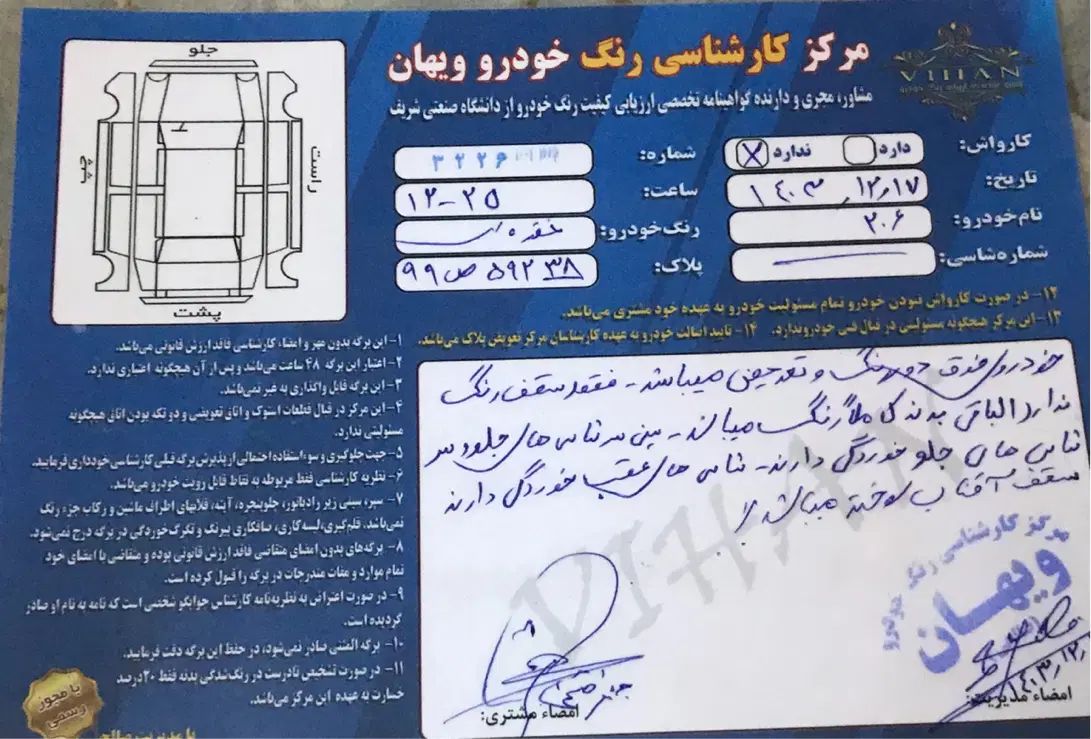 مرکز کارشناسی رنگ خودرو ویهان
VIHAN
مشاور، مجری و دارنده گواهینامه تخصصی ارزیابی کیفیت رنگ خودرو از دانشگاه صنعتی شریف
کارواش: دارد ندارد X
شماره: ۳۲۲۶
تاریخ: ۱۴۰۳,۱۲,۱۷
ساعت: ۱۲-۲۵
نام خودرو: ۲۰۶
رنگ خودرو: نقره ای
شماره شاسی: —
پلاک: ۹۹ ص ۵۹۲ ۳۸
جلو
راست
چپ
پشت
۱۲- در صورت کارواش نبودن خودرو تمام مسئولیت خودرو به عهده خود مشتری می‌باشد.
۱۳- این مرکز هیچگونه مسئولیتی در قبال فنی خودرو ندارد. ۱۴- تایید اصالت خودرو به عهده کارشناسان مرکز تعویض پلاک می‌باشد.
۱- این برگه بدون مهر و امضاء کارشناسی فاقد ارزش قانونی می‌باشد.
۲- اعتبار این برگه ۴۸ ساعت می‌باشد و پس از آن هیچگونه اعتباری ندارد.
۳- این برگه قابل واگذاری به غیر نمی‌باشد.
۴- این مرکز در قبال قطعات استوک و اتاق تعویضی و دو تکه بودن اتاق هیچگونه
مسئولیتی ندارد.
۵- جهت جلوگیری و سوءاستفاده احتمالی از پذیرش برگه قبلی کارشناسی خودداری فرمایید.
۶- نظریه کارشناسی فقط مربوطه به نقاط قابل رویت خودرو می‌باشد.
۷- سپر، سینی زیر رادیاتور، جلوپنجره، آینه، قلابهای اطراف ماشین و رکاب جزء رنگ
نمی‌باشد. قلم‌گیری، لیسه‌کاری، صافکاری بیرنگ و تگرگ‌خوردگی در برگه درج نمی‌شود.
۸- برگه‌های بدون امضای متقاضی فاقد ارزش قانونی بوده و متقاضی با امضای خود
تمام موارد و مفات مندرجات در برگه را قبول کرده است.
۹- در صورت اعتراض به نظریه‌نامه کارشناس جوابگو شخصی است که نامه به نام او صادر
گردیده است.
۱۰- برگه المثنی صادر نمی‌شود، در حفظ این برگه دقت فرمایید.
۱۱- در صورت تشخیص نادرست در رنگ‌شدگی بدنه فقط ۲۰ درصد
خسارت به عهده این مرکز می‌باشد.
خودروی فوق دور رنگ و تعویضی میباشد - فقط سقف رنگ
ندارد الباقی بدنه کاملا رنگ میباشد - سینی سر شاسی های جلو و سر
شاسی های جلو خوردگی دارند - شاسی های عقب خوردگی دارند
سقف آفتاب سوخته میباشد //
VIHAN
مرکز کارشناسی رنگ خودرو
ویهان
امضاء مشتری:
امضاء مدیریت:
۱۴۰۳,۱۲,
با مجوز
رسمی
با مدیریت صالح